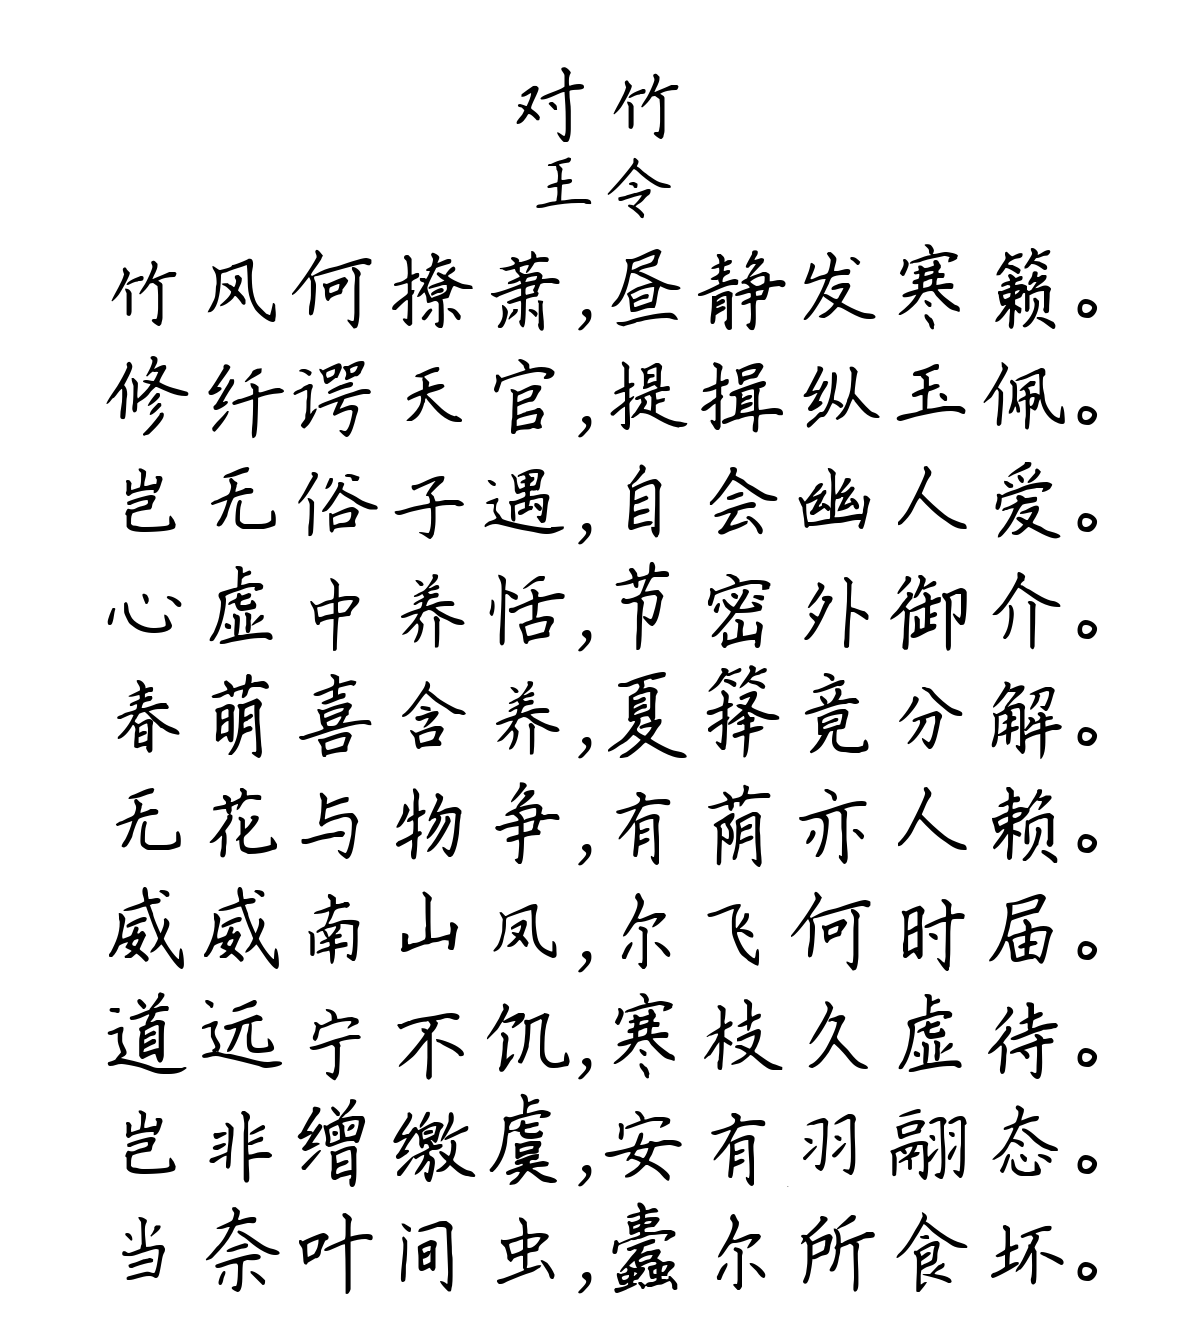 对竹
王令
竹风何撩萧,昼静发寒籁。
修纤谔天官,提揖纵玉佩。
岂无俗子遇,自会幽人爱。
心虚中养恬,节密外御介。
春萌喜含养,夏箨竟分解。
无花与物争,有荫亦人赖。
威威南山凤,尔飞何时届。
道远宁不饥,寒枝久虚待。
岂非缯缴虞,安有羽翮态。
当奈叶间虫,蠹尔所食坏。